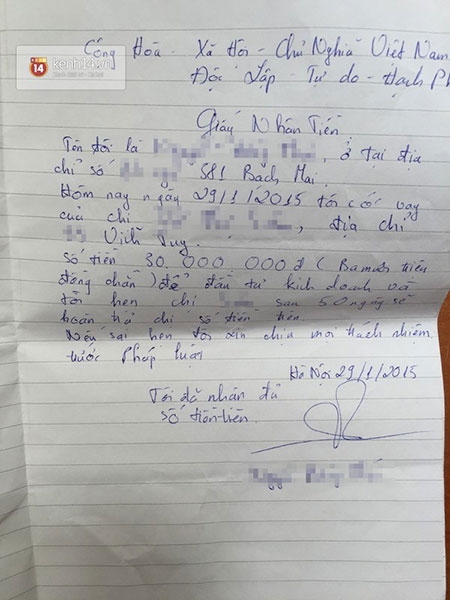 kenh14.vn
Cộng Hoà - Xã Hội - Chủ Nghĩa Việt Nam
Độc Lập - Tự do - Hạnh Ph
Giấy Nhận Tiền
Tên tôi là , ở tại địa
chỉ số 581 Bạch Mai
Hôm nay ngày 29/1/2015 tôi có vay
của chị , địa chỉ
Vĩnh Tuy.
số tiền 30 000 000đ (Ba mươi triệu
đồng chẵn) để đầu tư kinh doanh và
tôi hẹn chị sau 50 ngày sẽ
hoàn trả chị số tiền trên.
Nếu sai hẹn tôi xin chịu mọi trách nhiệm
trước Pháp luật
Hà Nội 29/1/2015
Tôi đã nhận đủ
số tiền trên.